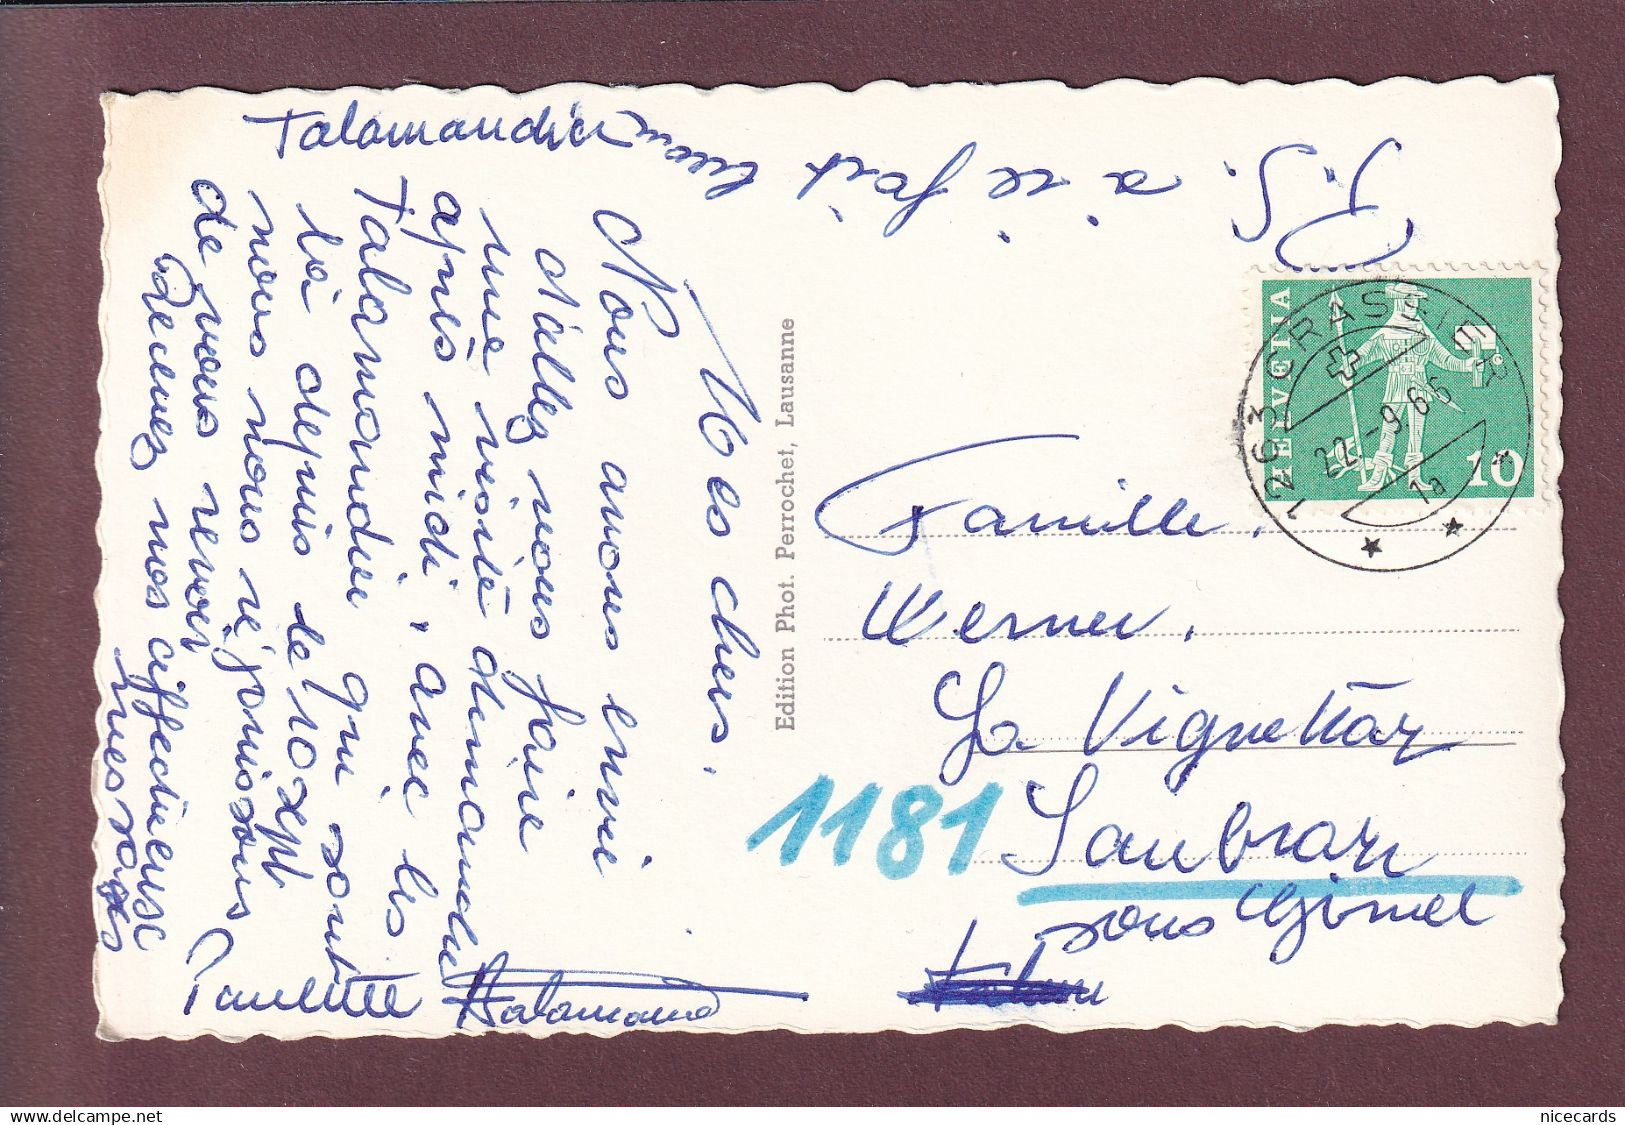 Mes chers.
Nous avons envie
d'allez vous faire
une visite dimanche
après midi, avec les
Talamandier qui sont
là depuis le 10 sept
nous nous réjouissons
de vous revoir
Recevez nos affectueuse
messages
Paulette
Talamandier
P.S.
Edition Phot. Perrochet, Lausanne
HELVETIA
10
1263 CRASSIER
22.-9.66
1a
Famille.
Werner.
La Vignettaz
1181
Saubraz
sous Gimel
nicecards